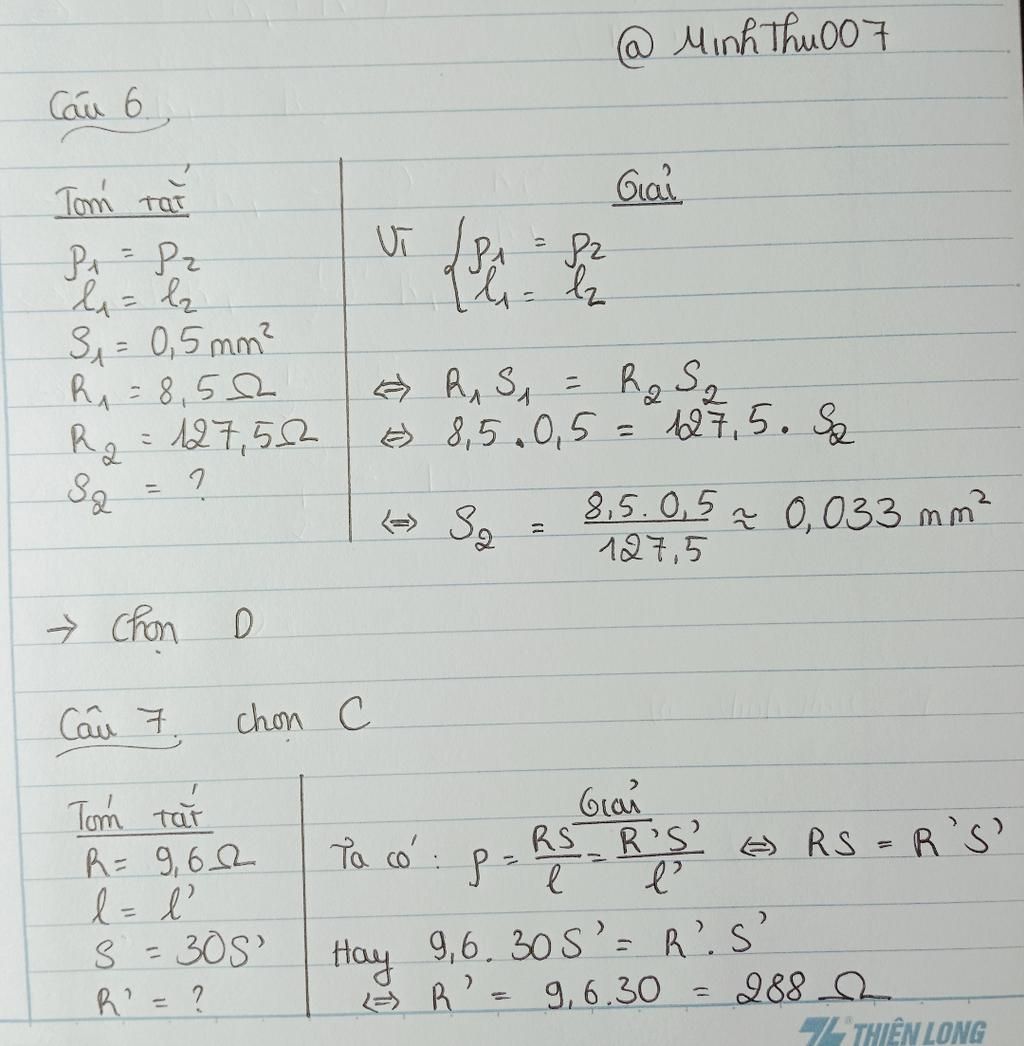 @ MinhThu007
Câu 6
Tóm tắt
ρ1 = ρ2
l1 = l2
S1 = 0,5 mm²
R1 = 8,5 Ω
R2 = 127,5 Ω
S2 = ?
Giải
Vì { ρ1 = ρ2
l1 = l2
⇔ R1 S1 = R2 S2
⇔ 8,5 . 0,5 = 127,5 . S2
⇔ S2 = 8,5 . 0,5 / 127,5 ≈ 0,033 mm²
→ Chọn D
Câu 7. chọn C
Tóm tắt
R = 9,6 Ω
l = l'
S = 30S'
R' = ?
Giải
Ta có : ρ = RS / l = R'S' / l' ⇔ RS = R'S'
Hay 9,6 . 30S' = R' . S'
⇔ R' = 9,6 . 30 = 288 Ω
THIÊN LONG